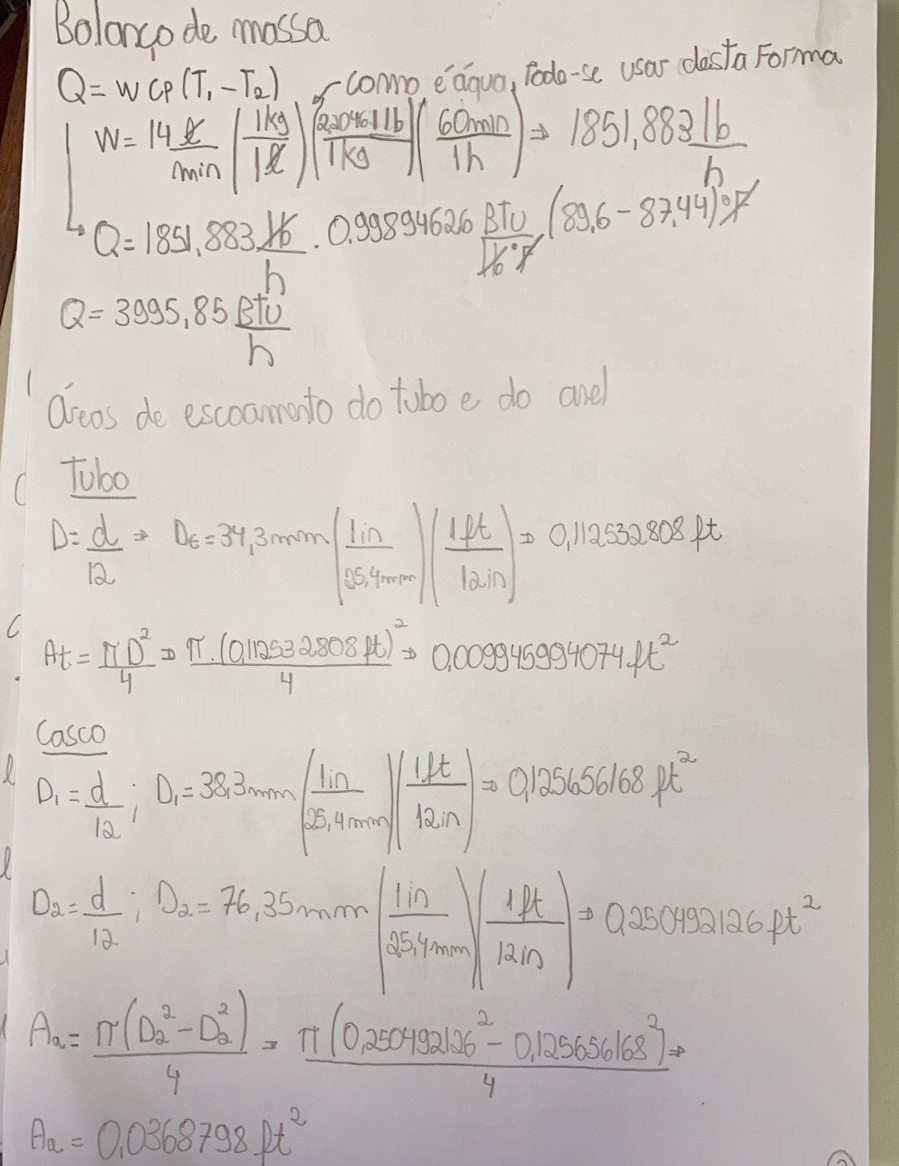 Balanço de massa
Q = W Cp (T₁ - T₂) como é água, Pode-se usar desta Forma
W = 14 ℓ/min (1kg/1ℓ) (2,20461 lb/1kg) (60min/1h) ⇒ 1851,883 lb/h
Q = 1851,883 lb/h . 0,99894626 BTU/lb°F . (89,6 - 87,44)°F
Q = 3995,85 BTU/h
Áreas de escoamento do tubo e do anel
Tubo
D = d/12 ⇒ Dt = 34,3mm (1in/25,4mm) (1ft/12in) ⇒ 0,112532808 ft
At = πD²/4 ⇒ π.(0,112532808 ft)²/4 ⇒ 0,009945994074 ft²
Casco
D₁ = d/12 ; D₁ = 38,3mm (1in/25,4mm) (1ft/12in) ⇒ 0,125656168 ft²
D₂ = d/12 ; D₂ = 76,35mm (1in/25,4mm) (1ft/12in) ⇒ 0,250492126 ft²
Aa = π(D₂² - D₂²)/4 = π(0,250492126² - 0,125656168²)/4 ⇒
Aa = 0,0368798 ft²